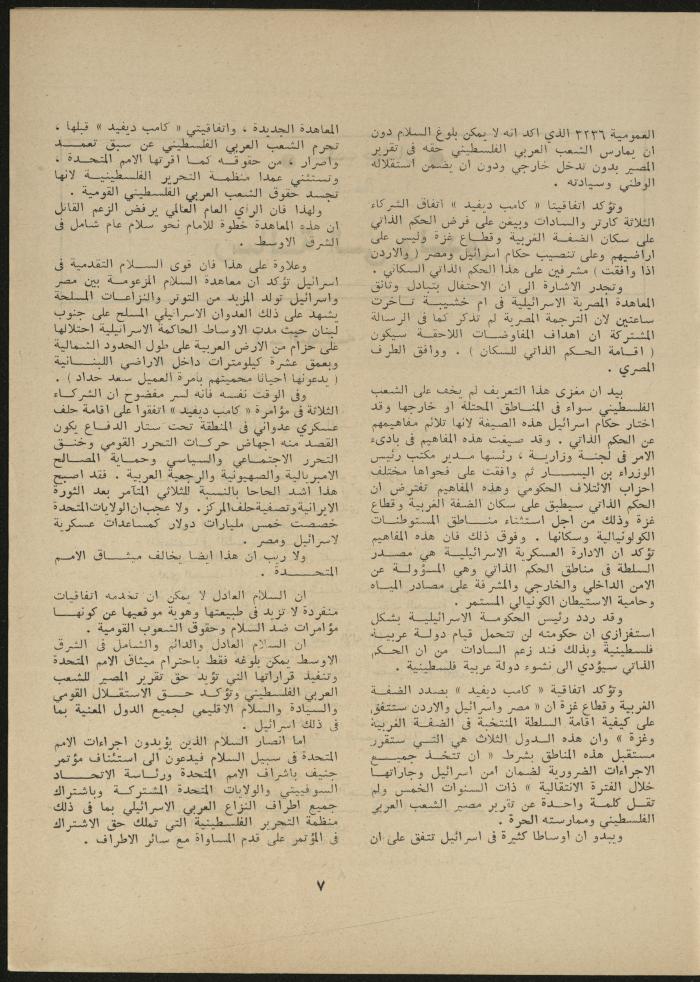 العمومية ٣٢٣٦ الذي اكد انه لا يمكن بلوغ السلام دون
ان يمارس الشعب العربي الفلسطيني حقه في تقرير
المصير بدون تدخل خارجي ودون ان يضمن استقلاله
الوطني وسيادته .
وتؤكد اتفاقيتا « كامب ديفيد » اتفاق الشركاء
الثلاثة كارتر والسادات وبيغن على فرض الحكم الذاتي
على سكان الضفة الغربية وقطاع غزة وليس على
اراضيهم وعلى تنصيب حكام اسرائيل ومصر ( والاردن
اذا وافقت ) مشرفين على هذا الحكم الذاتي السكاني .
وتجدر الاشارة الى ان الاحتفال بتبادل وثائق
المعاهدة المصرية الاسرائيلية في ام خشيبة تأخرت
ساعتين لان الترجمة المصرية لم تذكر كما في الرسالة
المشتركة ان اهداف المفاوضات اللاحقة سيكون
( اقامة الحكم الذاتي للسكان ) . ووافق الطرف
المصري .
بيد ان مغزى هذا التعريف لم يخف على الشعب
الفلسطيني سواء في المناطق المحتلة او خارجها وقد
اختار حكام اسرائيل هذه الصيغة لانها تلائم مفاهيمهم
عن الحكم الذاتي . وقد صيغت هذه المفاهيم في بادىء
الامر في لجنة وزارية ، رئسها مدير مكتب رئيس
الوزراء بن اليسار ثم وافقت على فحواها مختلف
احزاب الائتلاف الحكومي وهذه المفاهيم تفترض ان
الحكم الذاتي سيطبق على سكان الضفة الغربية وقطاع
غزة وذلك من اجل استثناء مناطق المستوطنات
الكولونيالية وسكانها . وفوق ذلك فان هذه المفاهيم
تؤكد ان الادارة العسكرية الاسرائيلية هي مصدر
السلطة في مناطق الحكم الذاتي وهي المسؤولة عن
الامن الداخلي والخارجي والمشرفة على مصادر المياه
وحامية الاستيطان الكونيالي المستمر .
وقد ردد رئيس الحكومة الاسرائيلية بشكل
استفزازي ان حكومته لن تتحمل قيام دولة عربية
فلسطينية وبذلك فند زعم السادات من ان الحكم
الذاتي سيؤدي الى نشوء دولة عربية فلسطينية .
وتؤكد اتفاقية « كامب ديفيد » بصدد الضفة
الغربية وقطاع غزة ان « مصر واسرائيل والاردن ستتفق
على كيفية اقامة السلطة المنتخبة في الضفة الغربية
وغزة » وان هذه الدول الثلاث هي التي ستقرر
مستقبل هذه المناطق بشرط « ان تتخذ جميع
الاجراءات الضرورية لضمان امن اسرائيل وجاراتها
خلال الفترة الانتقالية » ذات السنوات الخمس ولم
تقل كلمة واحدة عن تقرير مصير الشعب العربي
الفلسطيني وممارسته الحرة .
ويبدو ان اوساطا كثيرة في اسرائيل تتفق على ان
المعاهدة الجديدة ، واتفاقيتي « كامب ديفيد » قبلها ،
تحرم الشعب العربي الفلسطيني عن سبق تعمد
واصرار ، من حقوقه كما اقرتها الامم المتحدة ،
وتستثني عمدا منظمة التحرير الفلسطينية لانها
تجسد حقوق الشعب العربي الفلسطيني القومية .
ولهذا فان الرأي العام العالمي يرفض الزعم القائل
ان هذه المعاهدة خطوة للامام نحو سلام عام شامل في
الشرق الاوسط .
وعلاوة على هذا فان قوى السلام التقدمية في
اسرائيل تؤكد ان معاهدة السلام المزعومة بين مصر
واسرائيل تولد المزيد من التوتر والنزاعات المسلحة
يشهد على ذلك العدوان الاسرائيلي المسلح على جنوب
لبنان حيث مدت الاوساط الحاكمة الاسرائيلية احتلالها
على حزام من الارض العربية على طول الحدود الشمالية
وبعمق عشرة كيلومترات داخل الاراضي اللبنانية
( يدعونها احيانا محميتهم بامرة العميل سعد حداد ) .
وفي الوقت نفسه فأنه لسر مفضوح ان الشركاء
الثلاثة في مؤامرة « كامب ديفيد » اتفقوا على اقامة حلف
عسكري عدواني في المنطقة تحت ستار الدفاع يكون
القصد منه اجهاض حركات التحرر القومي وخنق
التحرر الاجتماعي والسياسي وحماية المصالح
الامبريالية والصهيونية والرجعية العربية . فقد اصبح
هذا اشد الحاحا بالنسبة للثلاثي المتآمر بعد الثورة
الايرانية وتصفية حلف المركز . ولا عجب ان الولايات المتحدة
خصصت خمس مليارات دولار كمساعدات عسكرية
لاسرائيل ومصر .
ولا ريب ان هذا ايضا يخالف ميثاق الامم
المتحدة .
ان السلام العادل لا يمكن ان تخدمه اتفاقيات
منفردة لا تزيد في طبيعتها وهوية موقعيها عن كونها
مؤامرات ضد السلام وحقوق الشعوب القومية .
ان السلام العادل والدائم والشامل في الشرق
الاوسط يمكن بلوغه فقط باحترام ميثاق الامم المتحدة
وتنفيذ قراراتها التي تؤيد حق تقرير المصير للشعب
العربي الفلسطيني وتؤكد حق الاستقلال القومي
والسيادة والسلام الاقليمي لجميع الدول المعنية بما
في ذلك اسرائيل .
اما انصار السلام الذين يؤيدون اجراءات الامم
المتحدة في سبيل السلام فيدعون الى استئناف مؤتمر
جنيف باشراف الامم المتحدة ورئاسة الاتحاد
السوفييتي والولايات المتحدة المشتركة وباشتراك
جميع اطراف النزاع العربي الاسرائيلي بما في ذلك
منظمة التحرير الفلسطينية التي تملك حق الاشتراك
في المؤتمر على قدم المساواة مع سائر الاطراف .
٧